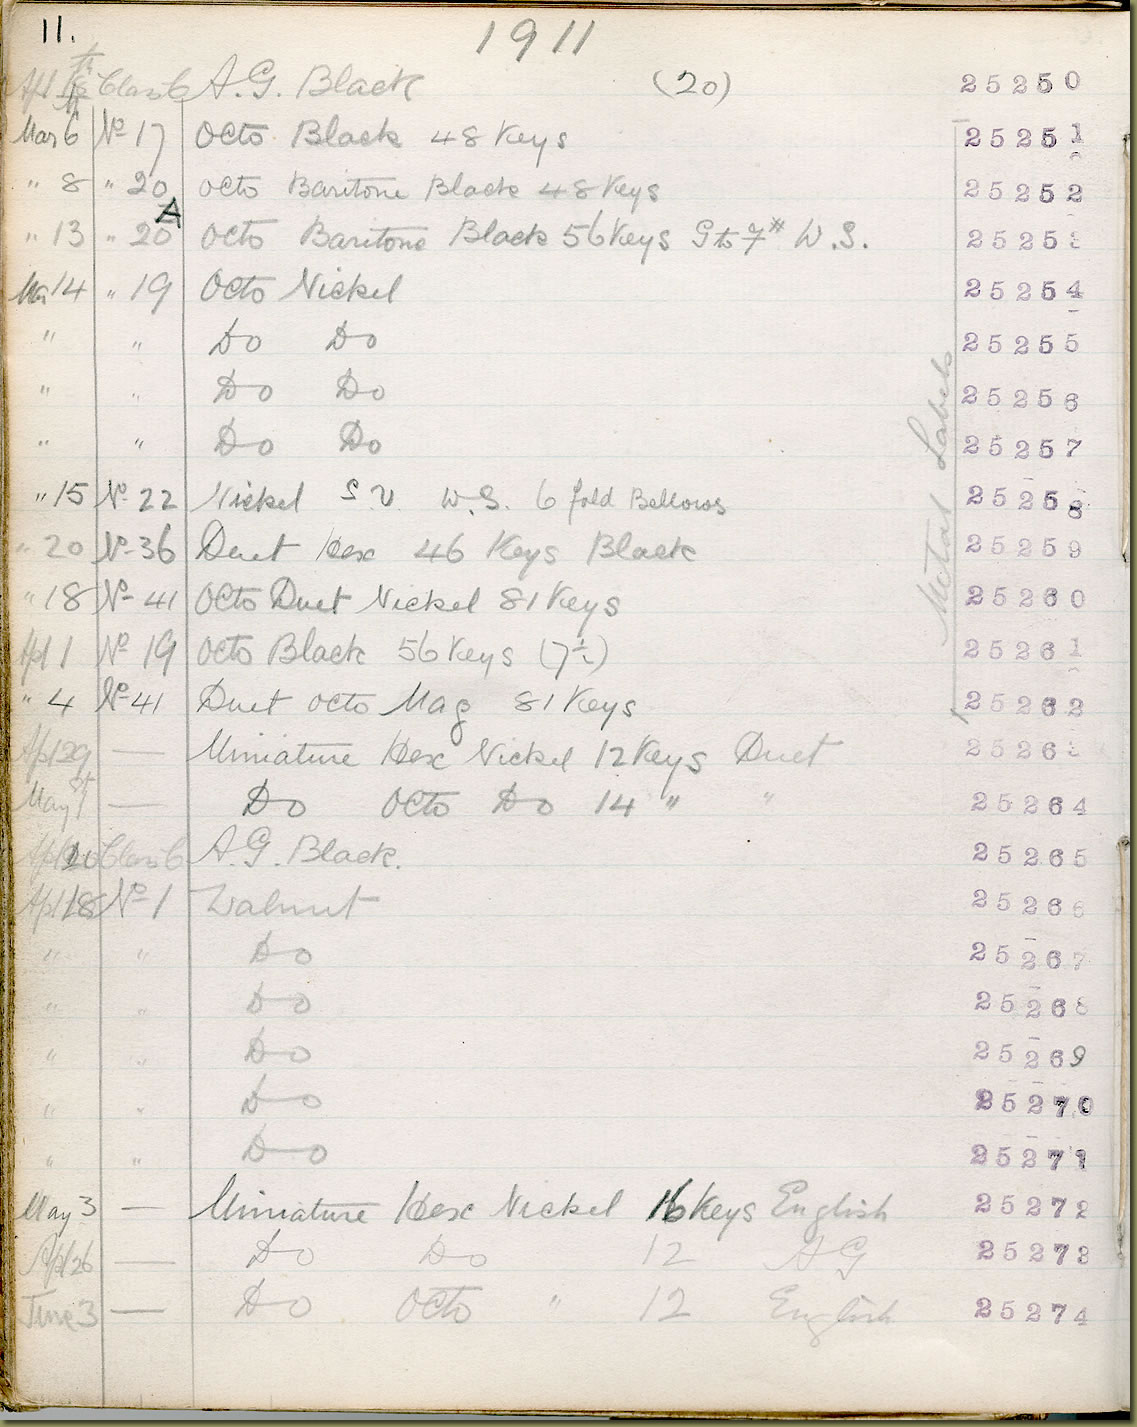 11.
1911
Apl Class 6 A.G. Black (20) 25250
Mar 6 No 17 Octo Black 48 Keys 25251
" 8 " 20 Octo Baritone Black 48 Keys 25252
" 13 " 20 A Octo Baritone Black 56 Keys G to F# W.S. 25253
Mar 14 " 19 Octo Nickel 25254
" " Do Do 25255
" " Do Do 25256
" " Do Do 25257
" 15 No 22 Nickel S.V. W.S. 6 fold Bellows 25258
" 20 No 36 Duet Hex 46 Keys Black 25259
" 18 No 41 Octo Duet Nickel 81 Keys 25260
Apl 1 No 19 Octo Black 56 Keys (7½) 25261
" 4 No 41 Duet Octo Mag 81 Keys 25262
Metal Labels
Apl 29 — Miniature Hex Nickel 12 Keys Duet 25263
May 1st — Do Octo Do 14 " " 25264
Apl 20 Class 6 A.G. Black. 25265
Apl 18 No 1 Walnut 25266
" " Do 25267
" " Do 25268
" " Do 25269
" " Do 25270
" " Do 25271
May 3 — Miniature Hex Nickel 16 Keys English 25272
Apl 26 — Do Do 12 AG 25273
June 3 — Do Octo " 12 English 25274